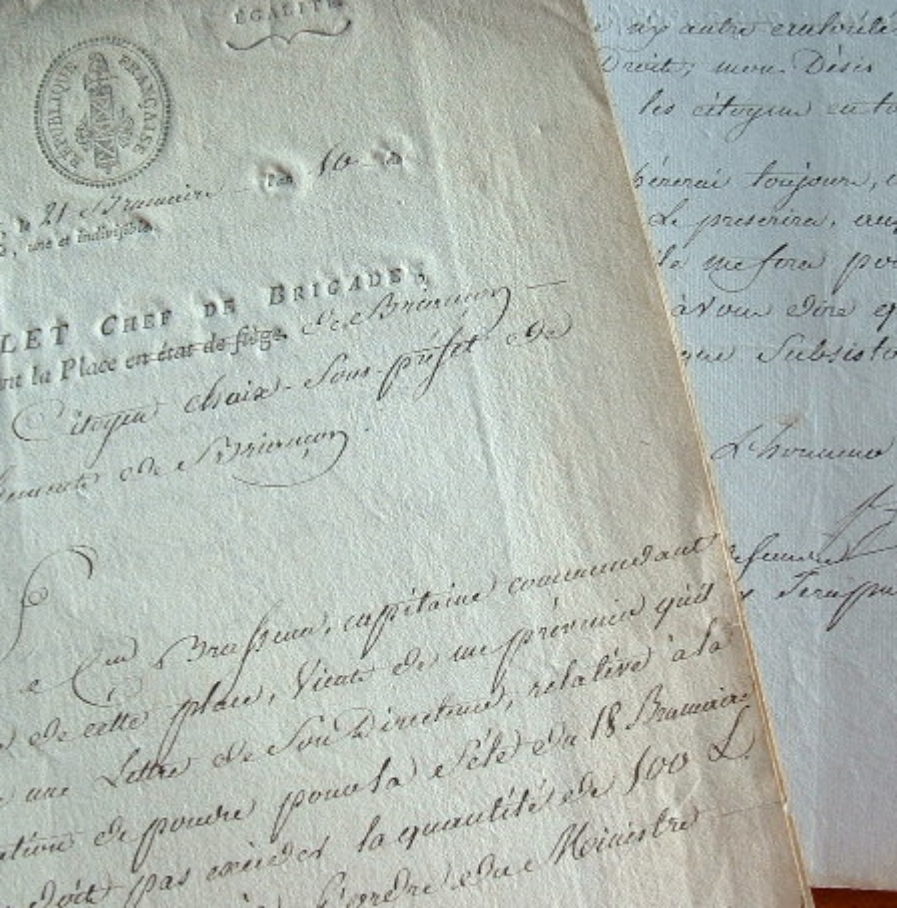 ÉGALITÉ.
RÉPUBLIQUE FRANÇAISE
le 21 Brumaire l'an 10 de
une et indivisible.
LET CHEF DE BRIGADE,
la Place en état de siège. de Briançon
Citoyen chaix Sous-préfet de
de Briançon.
Le Cen Brasseur, capitaine commandant
de cette place, Vient de me prévenir qu'il
une Lettre de Son Directeur, relative à la
de poudre pour la fête du 18 Brumaire
doit pas exceder la quantité de 100 L.
l'ordre du Ministre
autre
Droit; mon Désir
les citoyens
toujours,
Le prescrira,
me fera
à vous dire
Subsiste
L'honneur